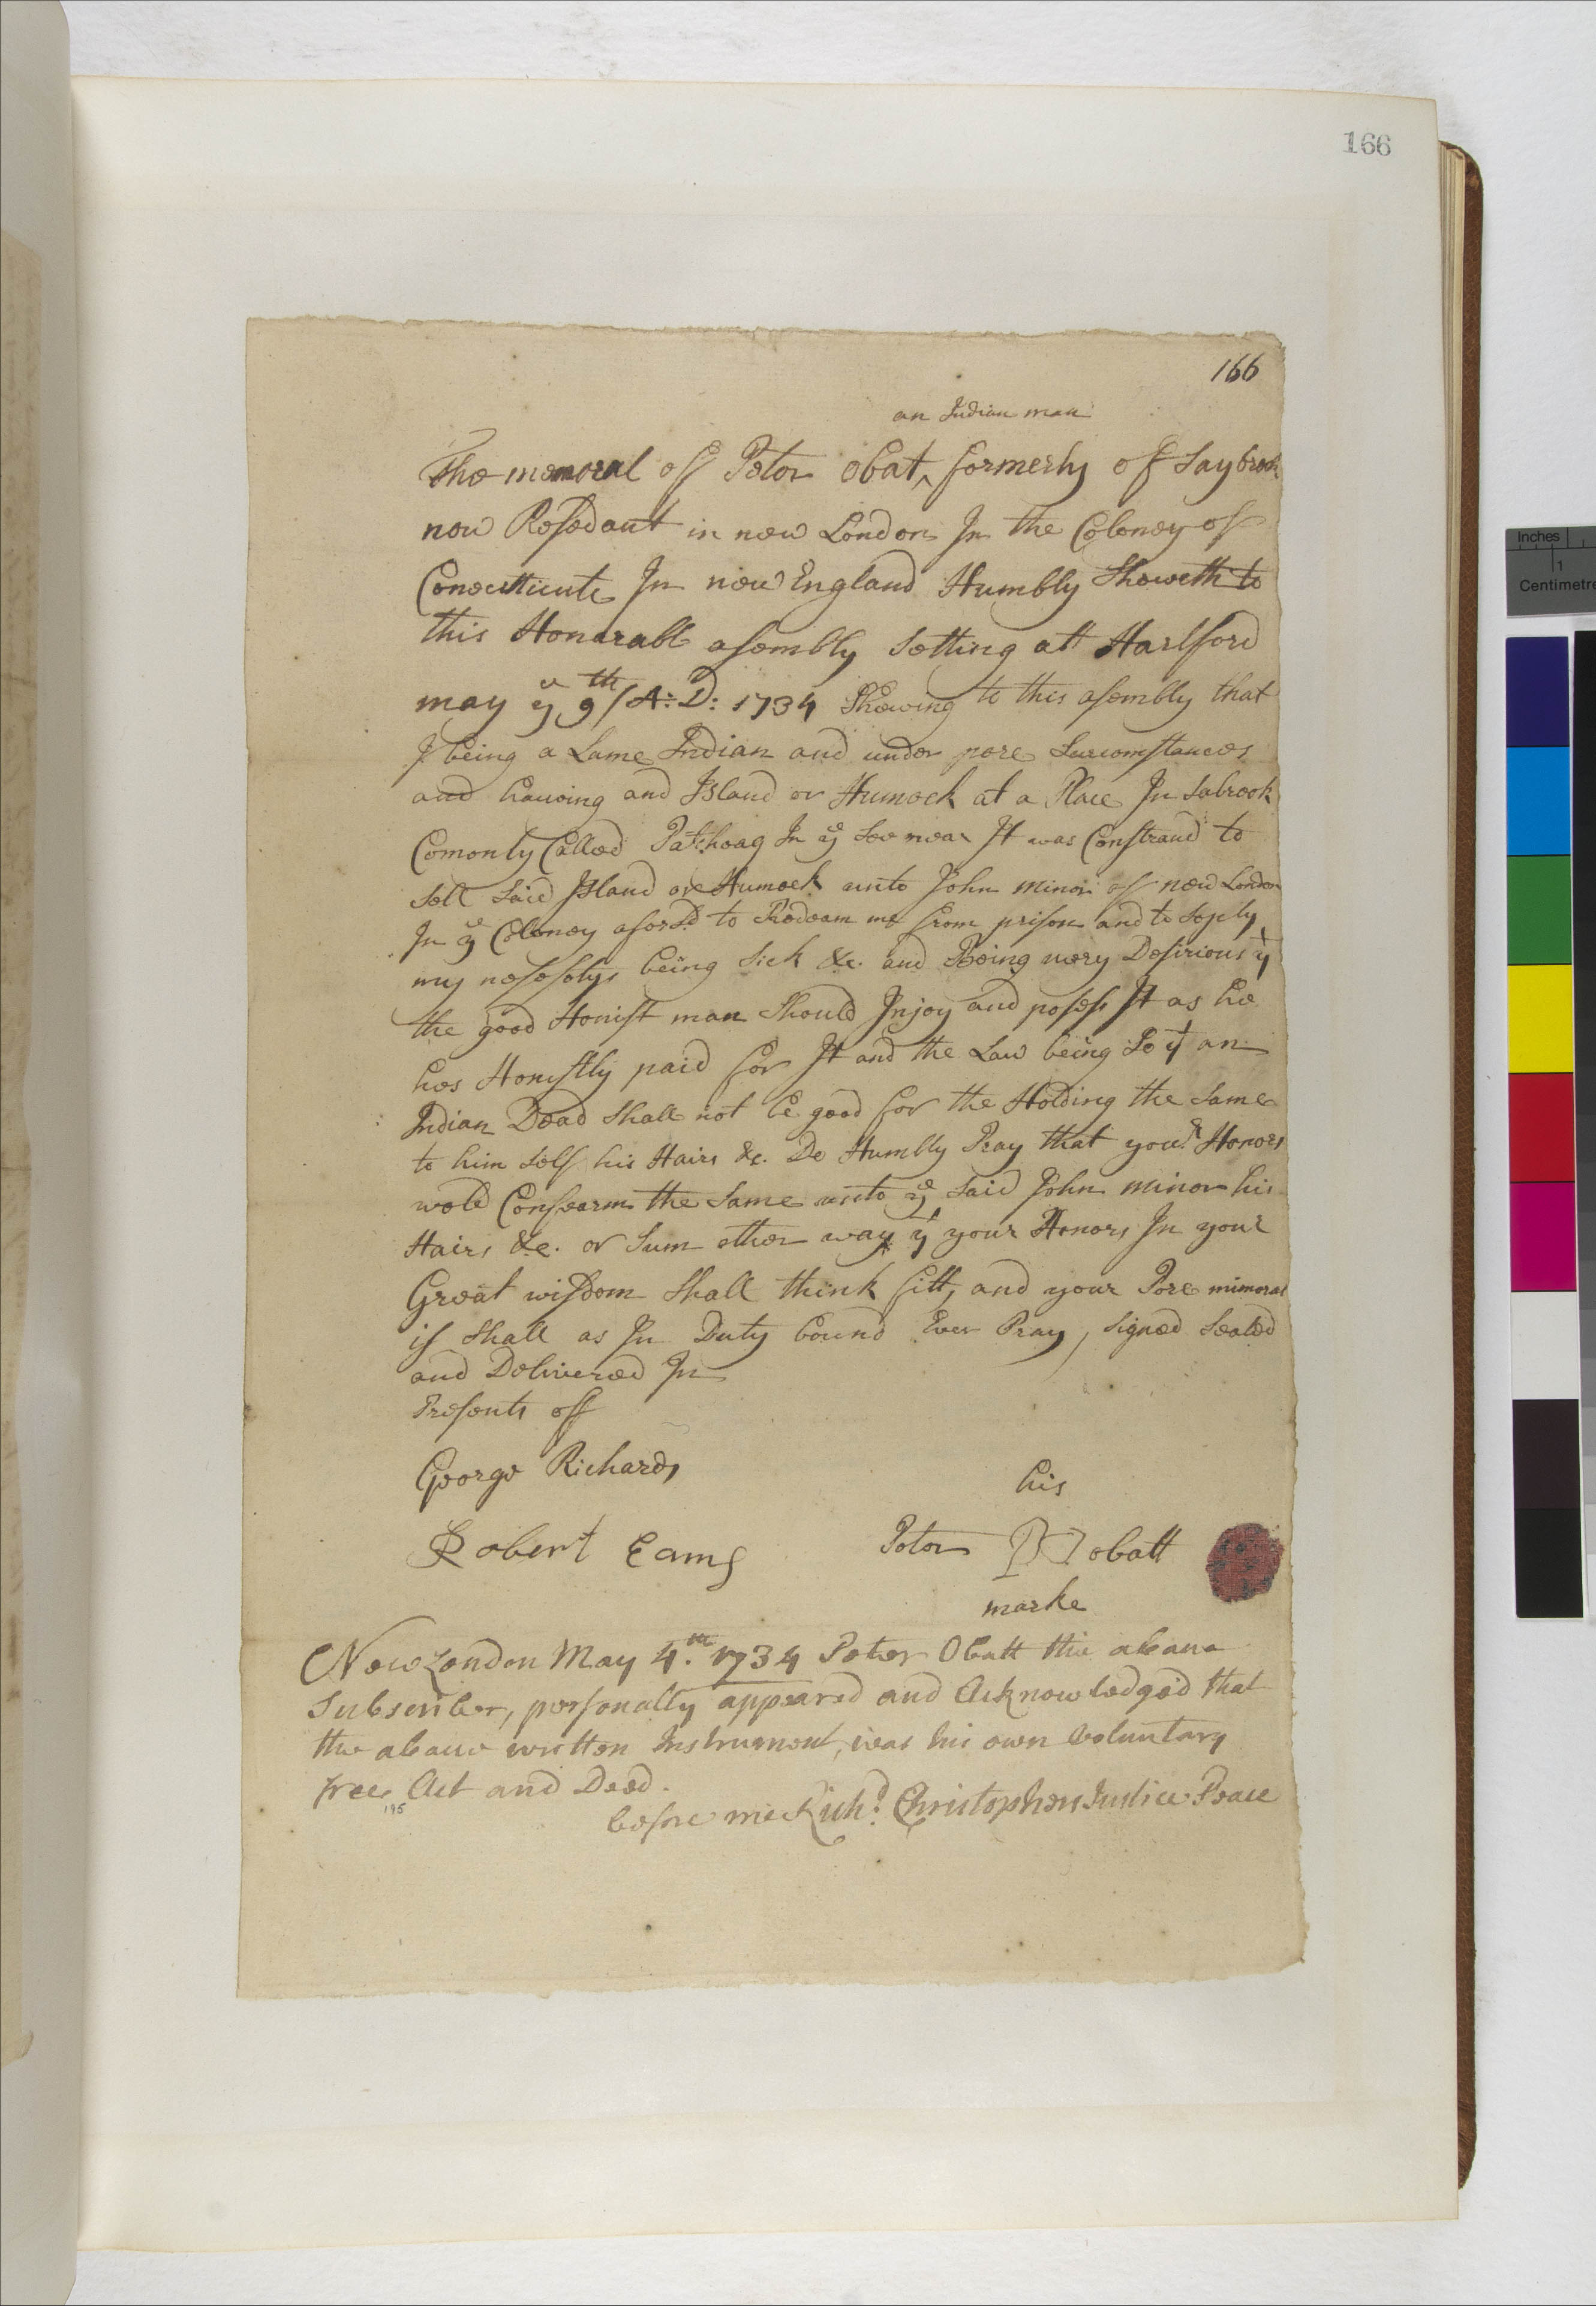 166
166
an Indian man
The memoral off Peter obat ^ formerly off Saybrook
now Resedant in new London In the Coloney off
Conecutticute In new England Humbly Sheweth to
this Honarable asembly Setting att Hartford
may ye 9th / A:D: 1734 Shewing to this asembly that
I being a Lame Indian and under pore Surcomstances
and haueing and Island or Humock at a Place In Sabrook
Comonly Called Patchoag In ye See near It was Constraud to
Sell Said Island ore Humock unto John minor of new London
In ye Coloney aforsd to Redeam me from prison and to Soply
my nesesetys being Sick &c. and Being uery Desirious yt
the good Honist man Should Injoy and posess It as he
hes Honistly paid for It and the Law being So yt an
Indian Dead Shall not be good for the Holding the Same
to him Self his Hairs &c. Do Humbly Pray that your Honors
wold Confearm the Same unto ye Said John minor his
Hairs &c. or Sum other way yt your Honors In your
Great wisdom Shall think fitt, and your Pore mimoral
is Shall as In Duty bound Ever Pray, Signed Sealed
and Delivered In
Presents off
George Richards
his
Robert Eams
Peter obatt
marke
New London May 4.th 1734 Peter Obatt the aboue
Subscriber, personally appeared and Acknowledged that
the aboue written Instrument, was his own Voluntary
free Act and Deed.
195
before me Richd. Christophers Justice Peace
Inches
1
Centimetre